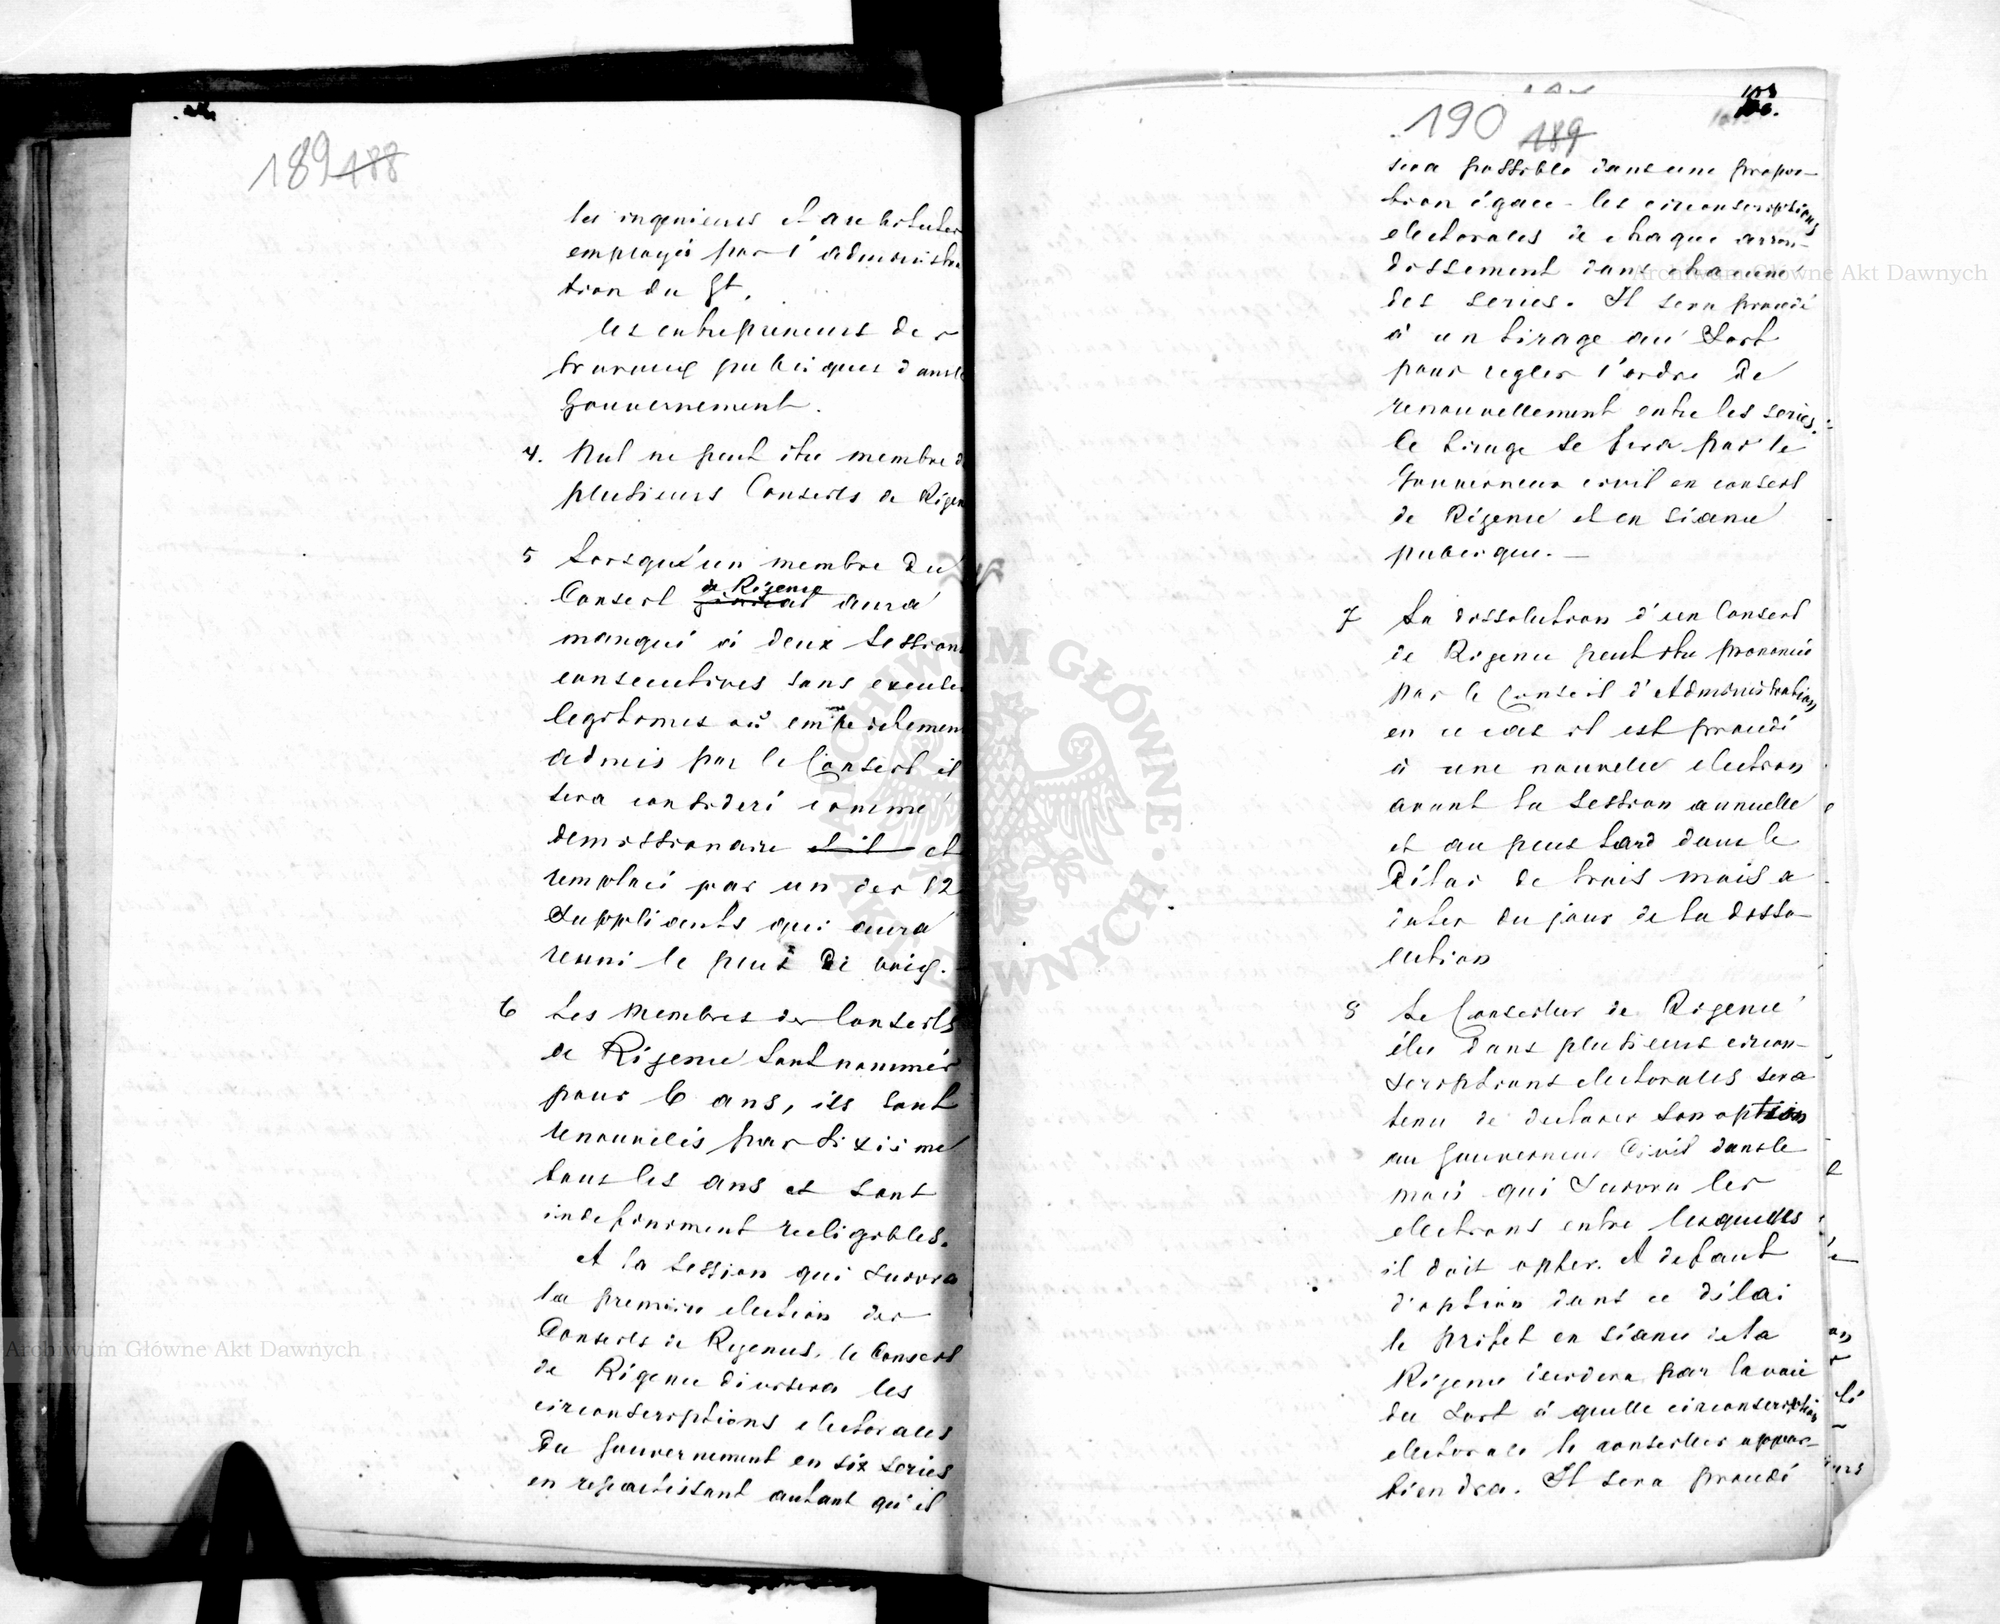 189 188
les ingenieurs et architectes
employés par l'administra
tion du Gt.
les entrepreneurs des
travaux publiques dans le
Gouvernement.
4. Nul ne peut être membre de
plusieurs Conseils de Régence
5 Lorsqu'un membre du
Conseil général de Régence aura
manqué à deux sessions
consecutives sans excuses
legitimes ou empechement
admis par le Conseil il
sera consideré comme
demissionaire et il et
remplacé par un des 12
suppléants qui aura
reuni le plus de voix.
6 Les membres des Conseils
de Régence sont nommés
pour 6 ans, ils sont
renouvelés par sixième
tous les ans et sont
indefiniment reeligibles.
A la session qui suivra
la premiere election des
Conseils de Regence, le Conseil
de Régence divisera les
circonscriptions electorales
du Gouvernement en six series
en repartissant autant qu'il
190 189
sera possible dans une propor-
tion égale les circonscriptions
electorales de chaque arron-
dissement dans chacune
des series. Il sera procédé
à un tirage au sort
pour regler l'ordre de
renouvellement entre les series.
Ce tirage se fera par le
Gouverneur civil en conseil
de Régence et en séance
publique. —
7 La dissolution d'un Conseil
de Régence peut être prononcée
par le Conseil d'Administration
en ce cas il est procédé
à une nouvelle election
avant la session annuelle
et au plus tard dans le
Délai de trois mois a
dater du jour de la disso-
lution
8 Le Conseiller de Régence
élu dans plusieurs circon-
scriptions electorales sera
tenu de declarer son option
au Gouverneur Civil dans le
mois qui suivra les
elections entre lesquelles
il doit opter. A defaut
d'option dans ce délai
le préfet en séance de la
Régence decidera par la voie
du sort à quelle circonscription
electorale le conseiller appar-
tiendra. Il sera procédé
Archiwum Główne Akt Dawnych
Archiwum Główne Akt Dawnych
ARCHIWUM GŁÓWNE AKT DAWNYCH